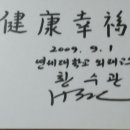 健康幸福
2009. 9. 1
연세대학교 의래교수
황수관